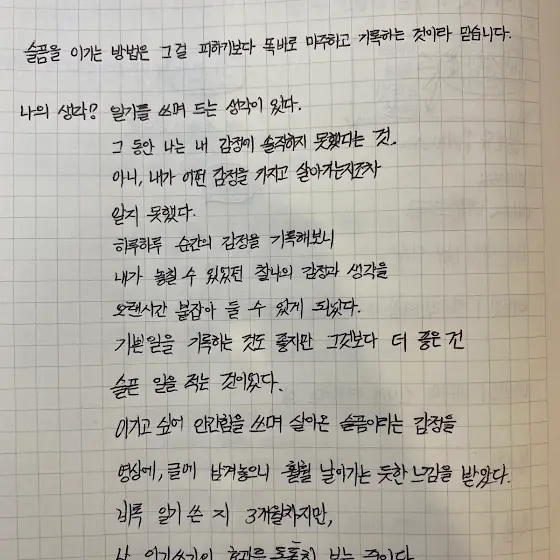 슬픔을 이기는 방법은 그걸 피하기보다 똑바로 마주하고 기록하는 것이라 믿습니다.
나의 생각? 일기를 쓰며 드는 생각이 있다.
그 동안 나는 내 감정에 솔직하지 못했다는 것.
아니, 내가 어떤 감정을 가지고 살아가는지조차
알지 못했다.
하루하루 순간의 감정을 기록해보니
내가 놓칠 수 있었던 찰나의 감정과 생각을
오랜시간 붙잡아 둘 수 있게 되었다.
기쁜일을 기록하는 것도 좋지만 그것보다 더 좋은 건
슬픈 일을 적는 것이었다.
이기고 싶어 안간힘을 쓰며 살아온 슬픔이라는 감정을
영상에, 글에 남겨놓으니 훨훨 날아가는 듯한 느낌을 받았다.
비록 일기 쓴 지 3개월차지만,
난 일기쓰기의 효과를 톡톡히 보는 중이다